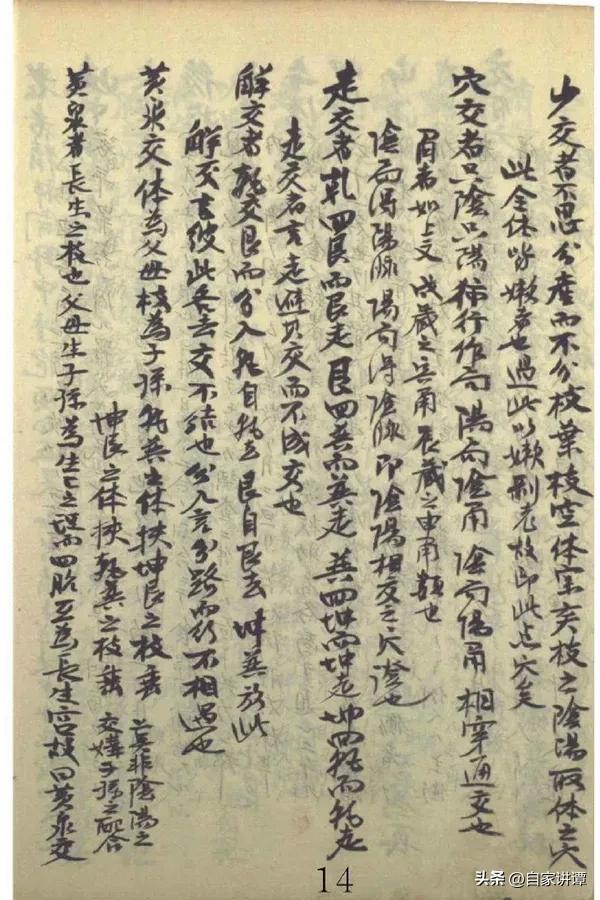 少交者不思分而不分枝葉枝空体之陰陽取体之穴
此全体皆嫩者也過此以嫩剝老故即此点穴矣
穴交者只陰只陽行作向陽向陰陰向陽相穿通交也
者如上文戌藏之辛辰藏之申類也
陰而得陽脉陽向得陰脉即陰陽相交之穴證也
走交者乾四艮而艮走艮四巽而巽走巽四坤而坤走坤四乾而乾走
走交者言走避而不成交也
解交者乾交艮而分入乾自乾去艮自艮去坤巽放此
解交言彼此各去交不結也分入言分路而行不相遇也
黄泉交体為父母枝為子孫乾巽之体挾坤艮之枝
坤艮之体挾乾巽之枝
莫非陰陽之
交媾子孫之配合
黄泉者長生之枝也父母生子孫為生生之理而四為長生宮故曰黄泉交
14
头条 @自家讲谭